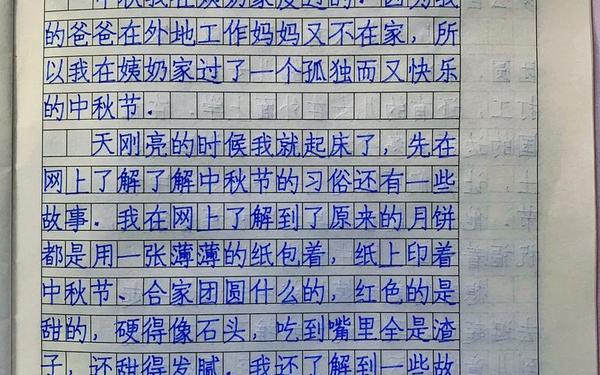 中秋我在姨奶家度过的. 因为我
的爸爸在外地工作妈妈又不在家，所
以我在姨奶家过了一个孤独而又快乐
的中秋节.
天刚亮的时候我就起床了，先在
网上了解了解中秋节的习俗还有一些
故事. 我在网上了解到了原来的月饼
都是用一张薄薄的纸包着，纸上印着
中秋节、合家团圆什么的，红色的是
甜的，硬得像石头，吃到嘴里全是渣
子，还甜得发腻. 我还了解到一些故